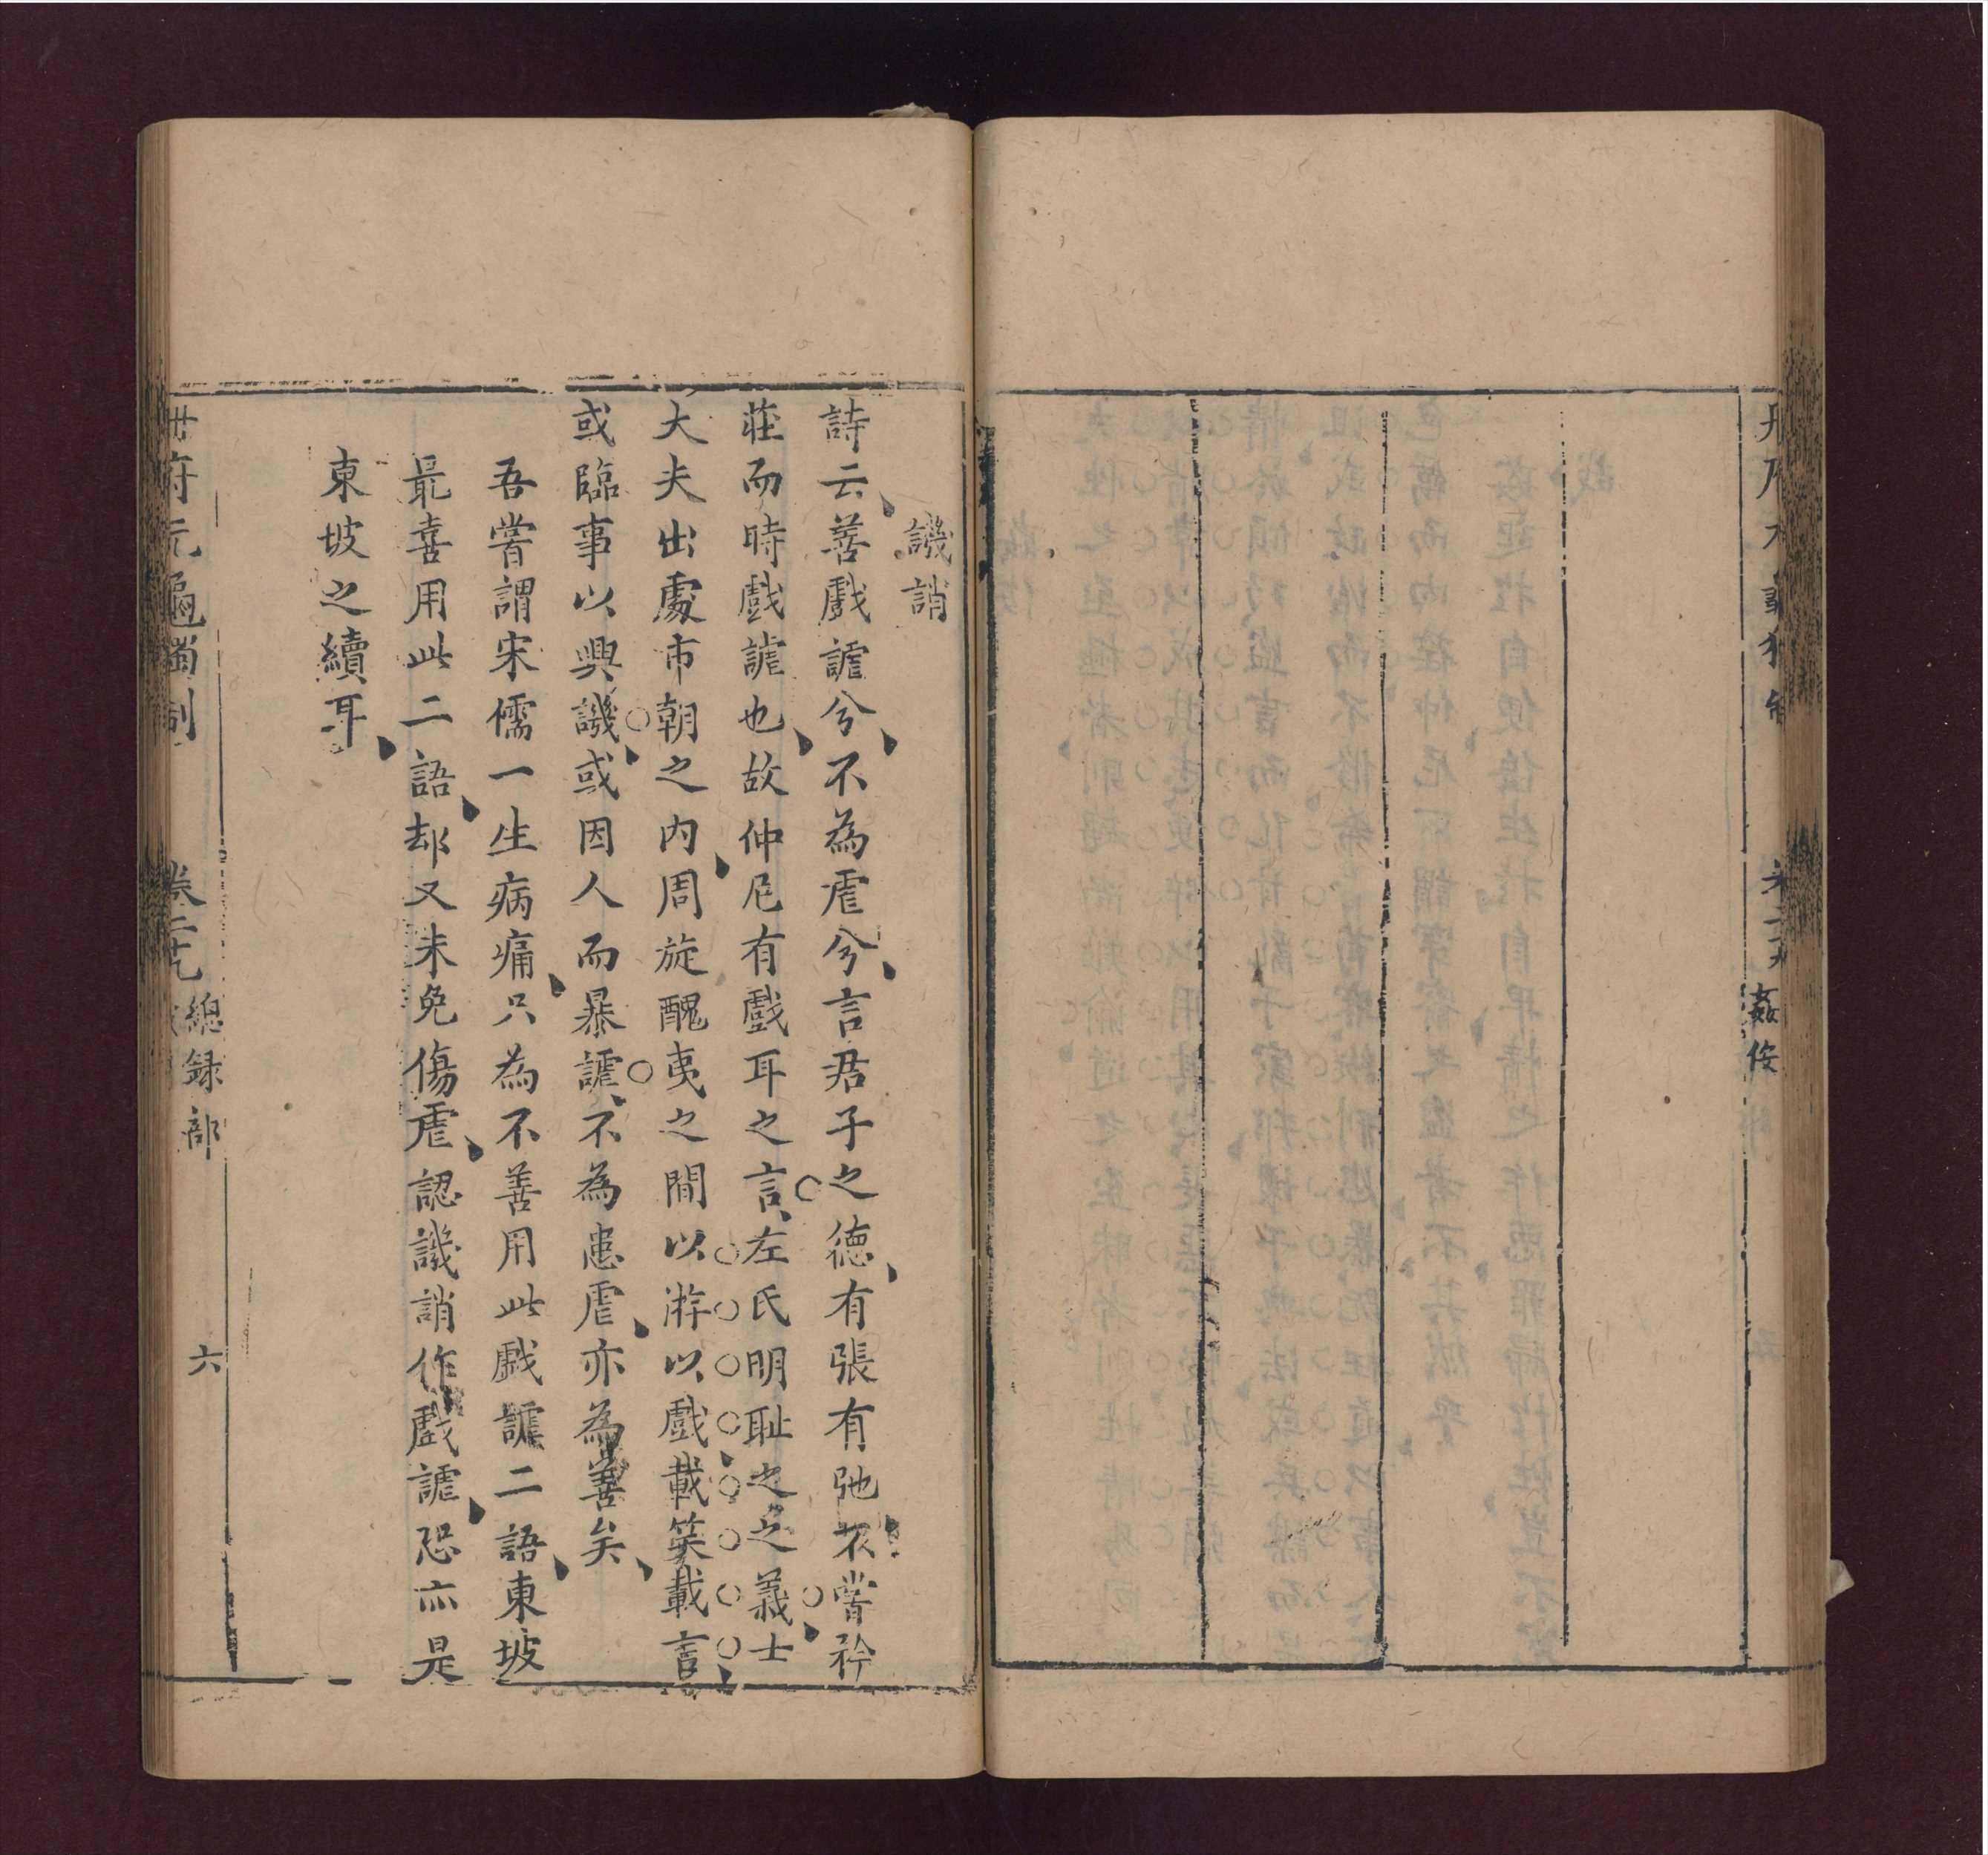 姦佞
譏誚
詩云善戲謔兮不為虐兮言君子之德有張有弛不嘗矜
莊而時戲謔也故仲尼有戲耳之言左氏明耻之之義士
大夫出處市朝之内周旋醜夷之間以游以戲載笑載言
或臨事以興譏或因人而暴謔不為患虐亦為善矣
吾嘗謂宋儒一生病痛只為不善用此戲謔二語東坡
最喜用此二語却又未免傷虐認譏誚作戲謔恐亦是
東坡之續耳
冊府元龜獨制 卷二十九 總録部 六